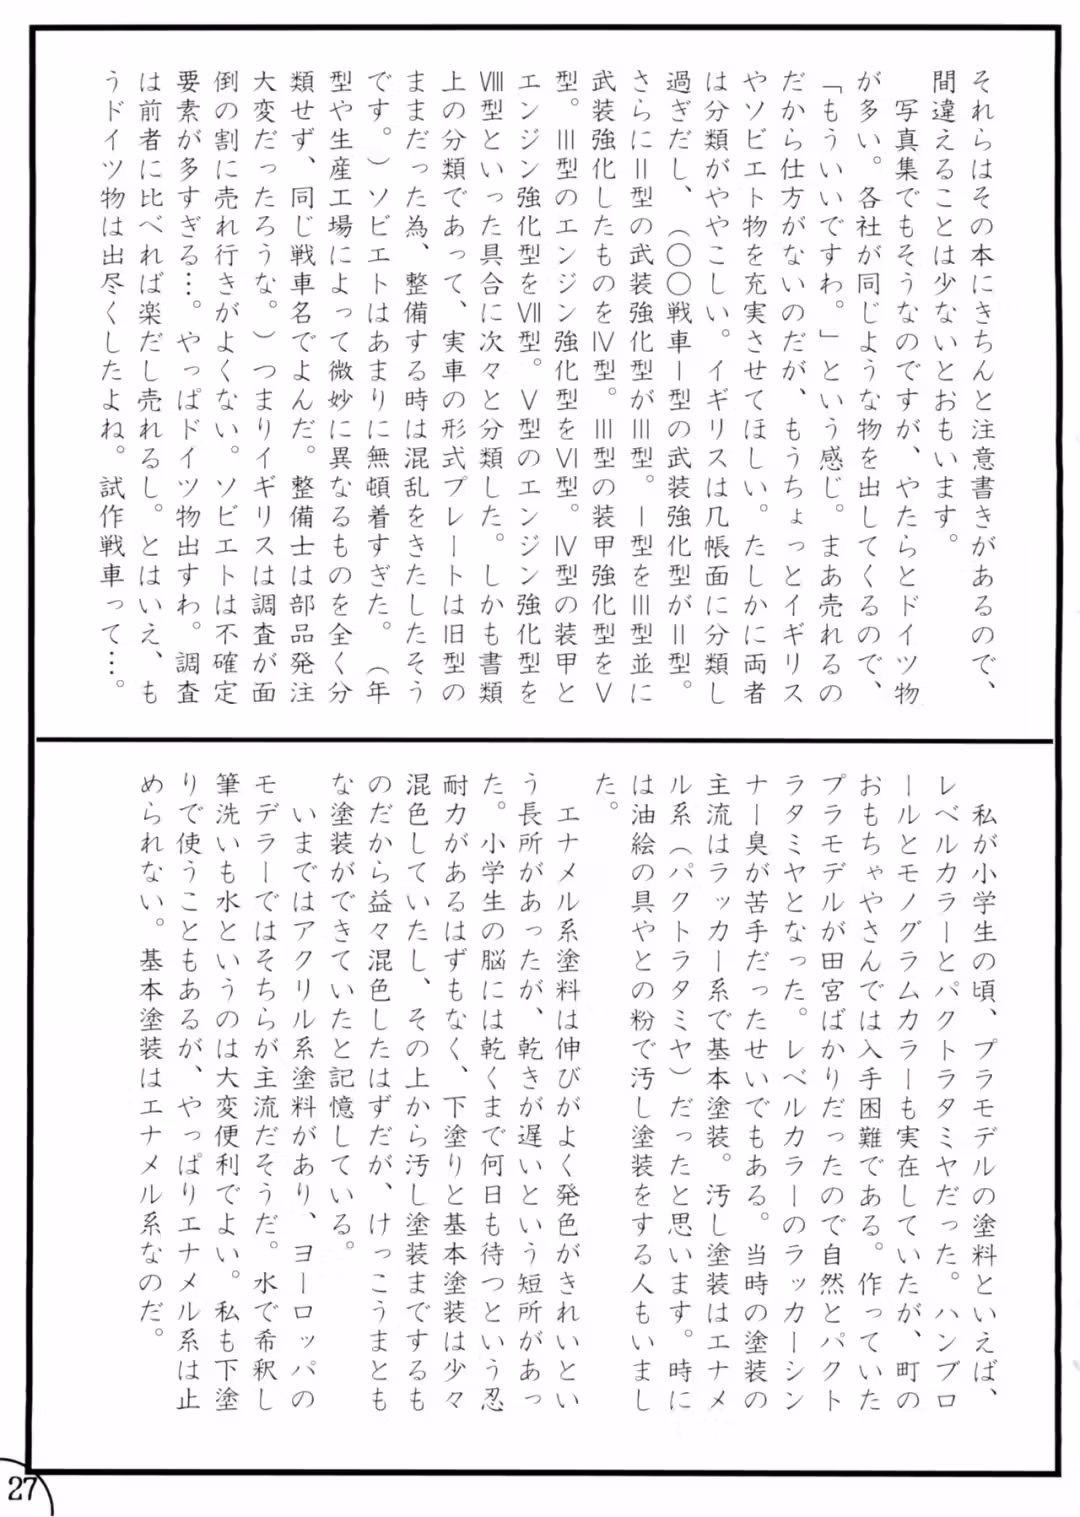 それらはその本にきちんと注意書きがあるので、
間違えることは少ないとおもいます。
　写真集でもそうなのですが、やたらとドイツ物
が多い。各社が同じような物を出してくるので、
「もういいですわ。」という感じ。まあ売れるの
だから仕方がないのだが、もうちょっとイギリス
やソビエト物を充実させてほしい。たしかに両者
は分類がややこしい。イギリスは几帳面に分類し
過ぎだし、（〇〇戦車Ⅰ型の武装強化型がⅡ型。
さらにⅡ型の武装強化型がⅢ型。Ⅰ型をⅢ型並に
武装強化したものをⅣ型。Ⅲ型の装甲強化型をⅤ
型。Ⅲ型のエンジン強化型をⅥ型。Ⅳ型の装甲と
エンジン強化型をⅦ型。Ⅴ型のエンジン強化型を
Ⅷ型といった具合に次々と分類した。しかも書類
上の分類であって、実車の形式プレートは旧型の
ままだった為、整備する時は混乱をきたしたそう
です。）ソビエトはあまりに無頓着すぎた。（年
型や生産工場によって微妙に異なるものを全く分
類せず、同じ戦車名でよんだ。整備士は部品発注
大変だったろうな。）つまりイギリスは調査が面
倒の割に売れ行きがよくない。ソビエトは不確定
要素が多すぎる…。やっぱドイツ物出すわ。調査
は前者に比べれば楽だし売れるし。とはいえ、も
うドイツ物は出尽くしたよね。試作戦車って…。
　私が小学生の頃、プラモデルの塗料といえば、
レベルカラーとパクトラタミヤだった。ハンブロ
ールとモノグラムカラーも実在していたが、町の
おもちゃやさんでは入手困難である。作っていた
プラモデルが田宮ばかりだったので自然とパクト
ラタミヤとなった。レベルカラーのラッカーシン
ナー臭が苦手だったせいでもある。当時の塗装の
主流はラッカー系で基本塗装。汚し塗装はエナメ
ル系（パクトラタミヤ）だったと思います。時に
は油絵の具やとの粉で汚し塗装をする人もいまし
た。
　エナメル系塗料は伸びがよく発色がきれいとい
う長所があったが、乾きが遅いという短所があっ
た。小学生の脳には乾くまで何日も待つという忍
耐力があるはずもなく、下塗りと基本塗装は少々
混色していたし、その上から汚し塗装までするも
のだから益々混色したはずだが、けっこうまとも
な塗装ができていたと記憶している。
　いまではアクリル系塗料があり、ヨーロッパの
モデラーではそちらが主流だそうだ。水で希釈し
筆洗いも水というのは大変便利でよい。私も下塗
りで使うこともあるが、やっぱりエナメル系は止
められない。基本塗装はエナメル系なのだ。
27